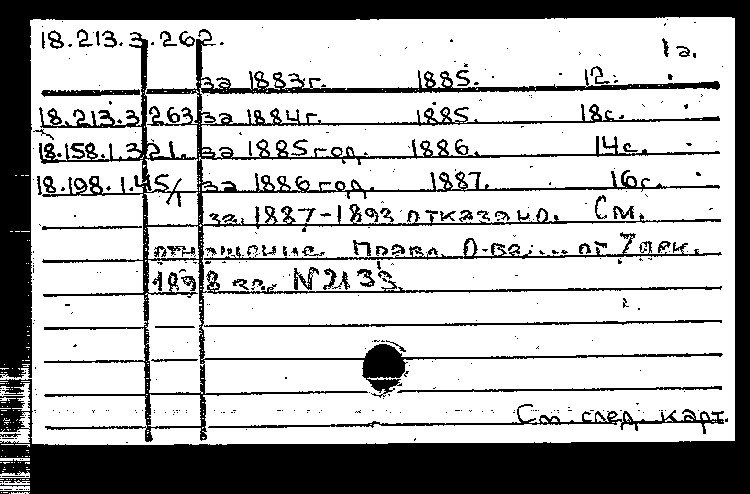 18.213.3.262.
1а.
за 1883г. 1885. 12.
18.213.3 263 за 1884г. 1885. 18с.
18.158.1.321. за 1885 год. 1886. 14с.
18.198.1.45/1 за 1886 год. 1887. 16с.
за 1887-1893 отказано. См.
отношение Правл. О-ва... от 7 дек.
1898 за N2133
См. след. карт.